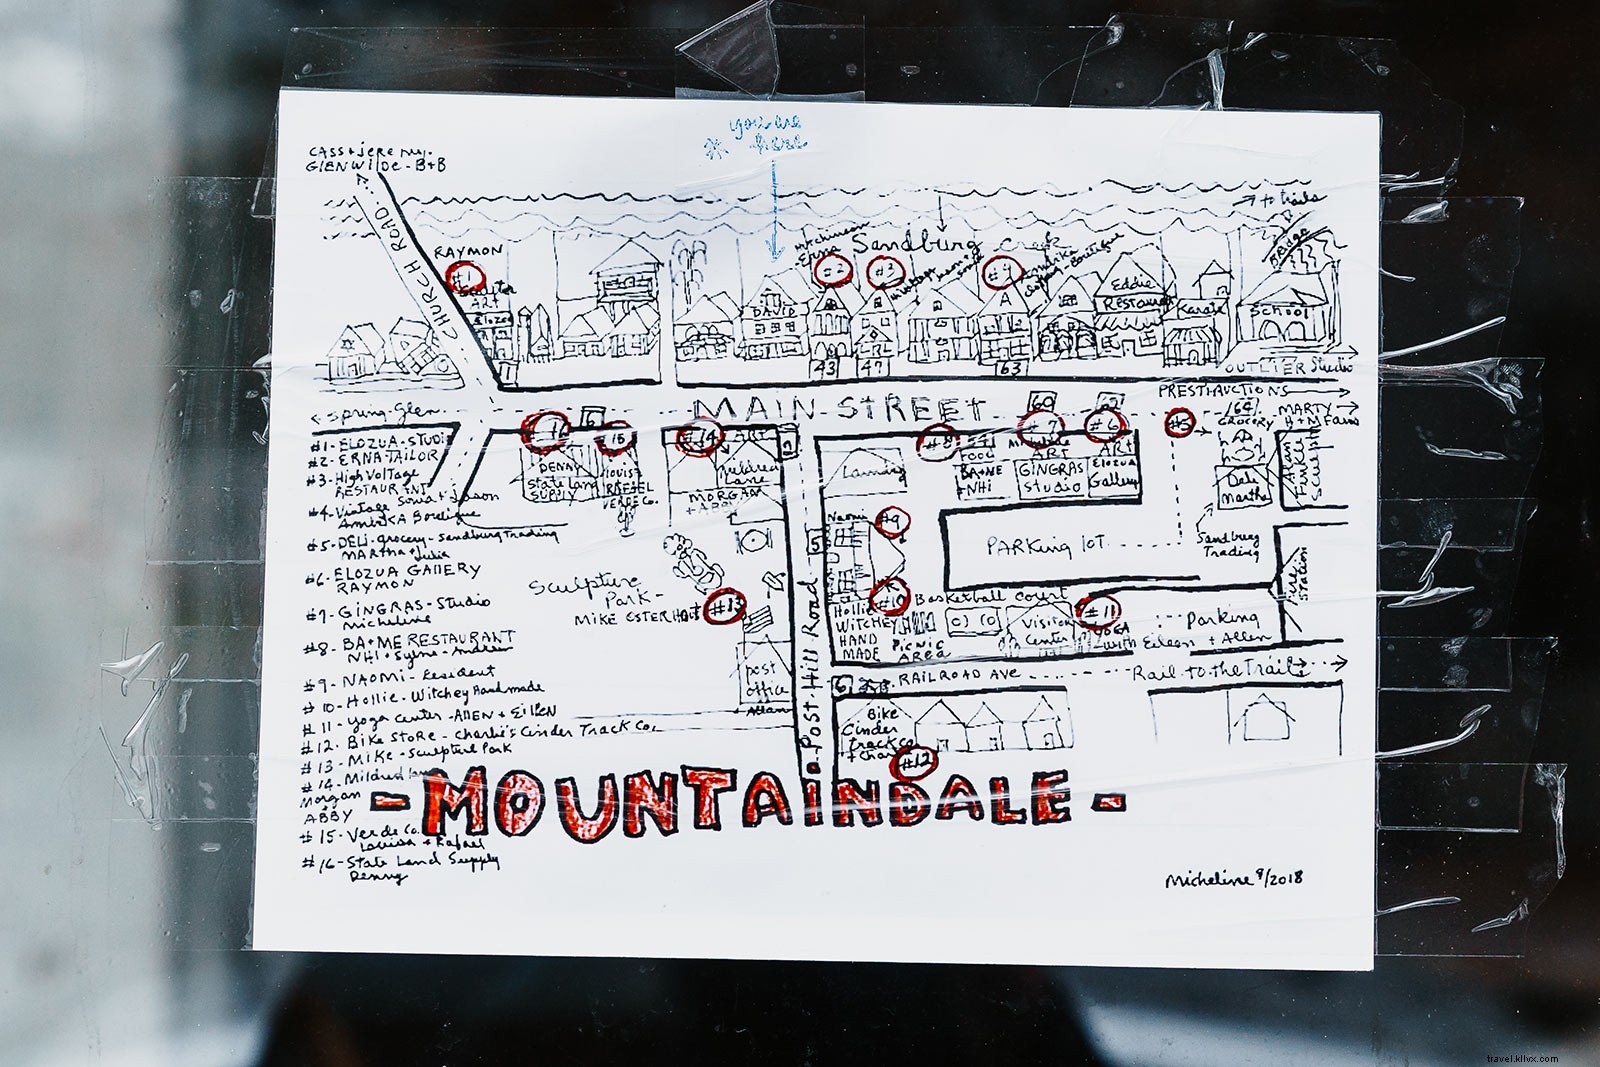 you are
* here
CASS + jeremy.
GLENWILDE - B+B
CHURCH ROAD
RAYMON
#1
ART
Elozua
11
DAVID
Hutchinson
Erna
#2
#3
#4
Sandburg Creek
Vintage
Boutique
A
43
47
63
Eddie
Restaurant
Karate
School
Bridge
→ to trails
OUTLIER Studio
← Spring-Glen
MAIN STREET
PRESTI AUCTIONS
MARTY →
H+M Farm
GROCERY
164
#5
#6
62
#7
60
#8
#14
#15
#16
6
DENNY
State Land
SUPPLY
Louisa
RAFAEL
VERDE Co.
Mildred
Lane
MORGAN
+ ABBY
Laundry
FOOD
BA+ME
+NHi
ART
GINGRAS
Studio
ART
Elozua
Gallery
Deli
Martha
Sandburg
Trading
Fire
Station
PARKing lOT
Naomi
#9
5
#10
Hollie
WITCHEY
HAND
MADE
PICNIC
AREA
Basketball Court
Visitor
Center
#11
YOGA
with Eileen + Allen
Parking
Sculpture
Park-
MIKE OSTERHOUT
#13
post
office
Allan
to Post Hill Road
6
RAILROAD AVE
Rail-to-the Trail →
Bike
Cinder
track Co.
#12
#1- ELOZUA-STUDIO
#2- ERNA-TAILOR
#3- High Voltage
RESTAURANT
#4- Vintage Sonia + Jason
AmbiKA Boutique
#5- DELi-grocery-Sandburg Trading
MARTHA + Julia
#6- ELOZUA GALLERY
RAYMON
#7- GINGRAS-Studio
Micheline
#8- BA+ME RESTAURANT
NHi + Sylvie - Andrew
#9- NAOMI- Resident
#10- Hollie-Witchey Handmade
#11- yoga center-AllEN + EilEEN
#12- Bike Store - Charlie's Cinder Track Co.
#13- Mike-Sculpture Park
#14- Mildred lane
Morgan
ABBY
#15- Verde Co.
Louisa + Rafael
#16- State Land Supply
Denny
-MOUNTAINDALE-
Micheline 9/2018
travel.kllvx.com